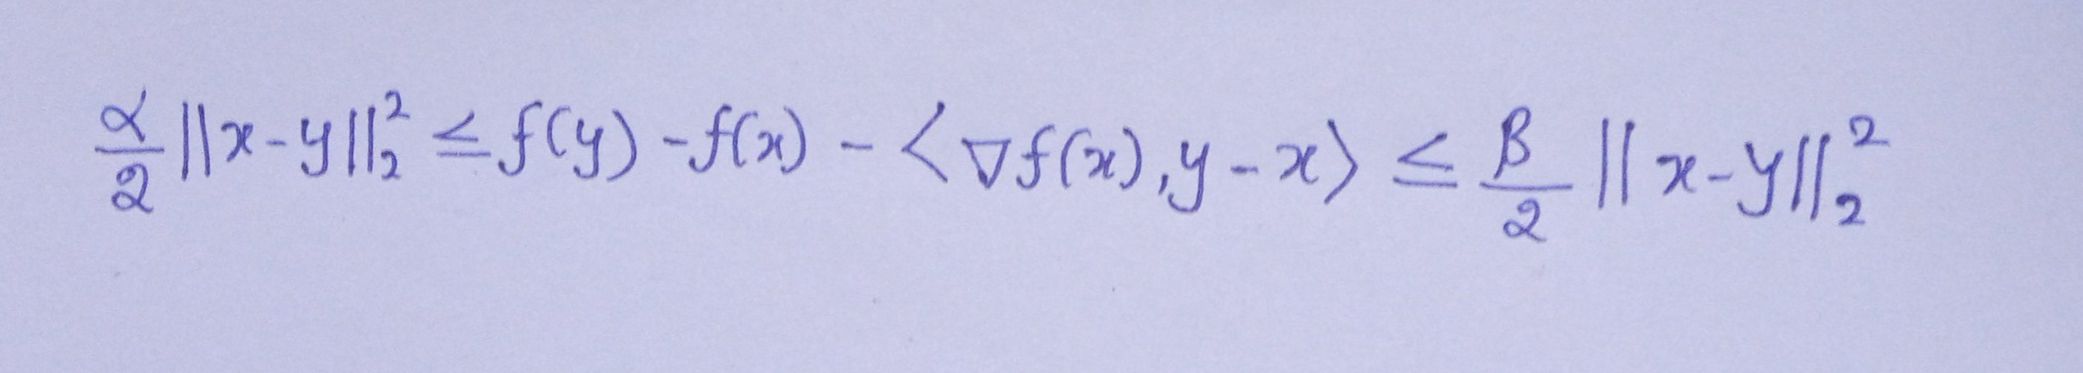 $\frac{\alpha}{2} \|x-y\|_2^2 \leq f(y) - f(x) - \langle \nabla f(x), y-x \rangle \leq \frac{\beta}{2} \|x-y\|_2^2$